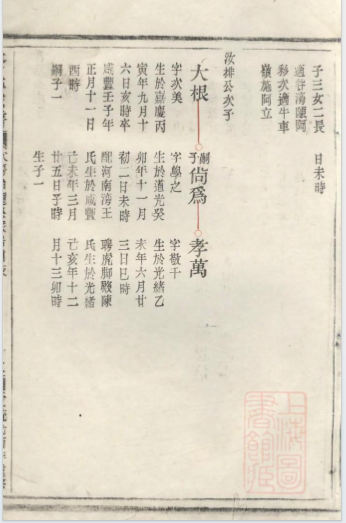 子三女二長
適
移次適牛車
嶺施阿立
日未時
汝排公次子
大根
字次美
生於嘉慶丙
寅年九月十
六日亥時卒
咸豐壬子年
正月十一日
酉時
嗣子一
嗣子尙爲
字學之
生於道光癸
卯年十一月
初二日未時
配河南灣王
氏生於咸豐
己未年三月
廿五日子時
生子一
孝萬
字敬千
生於光緒乙
未年六月廿
三日巳時
聘虎脚陳
氏生於光緒
己亥年十二
月十三卯時
上海圖書館